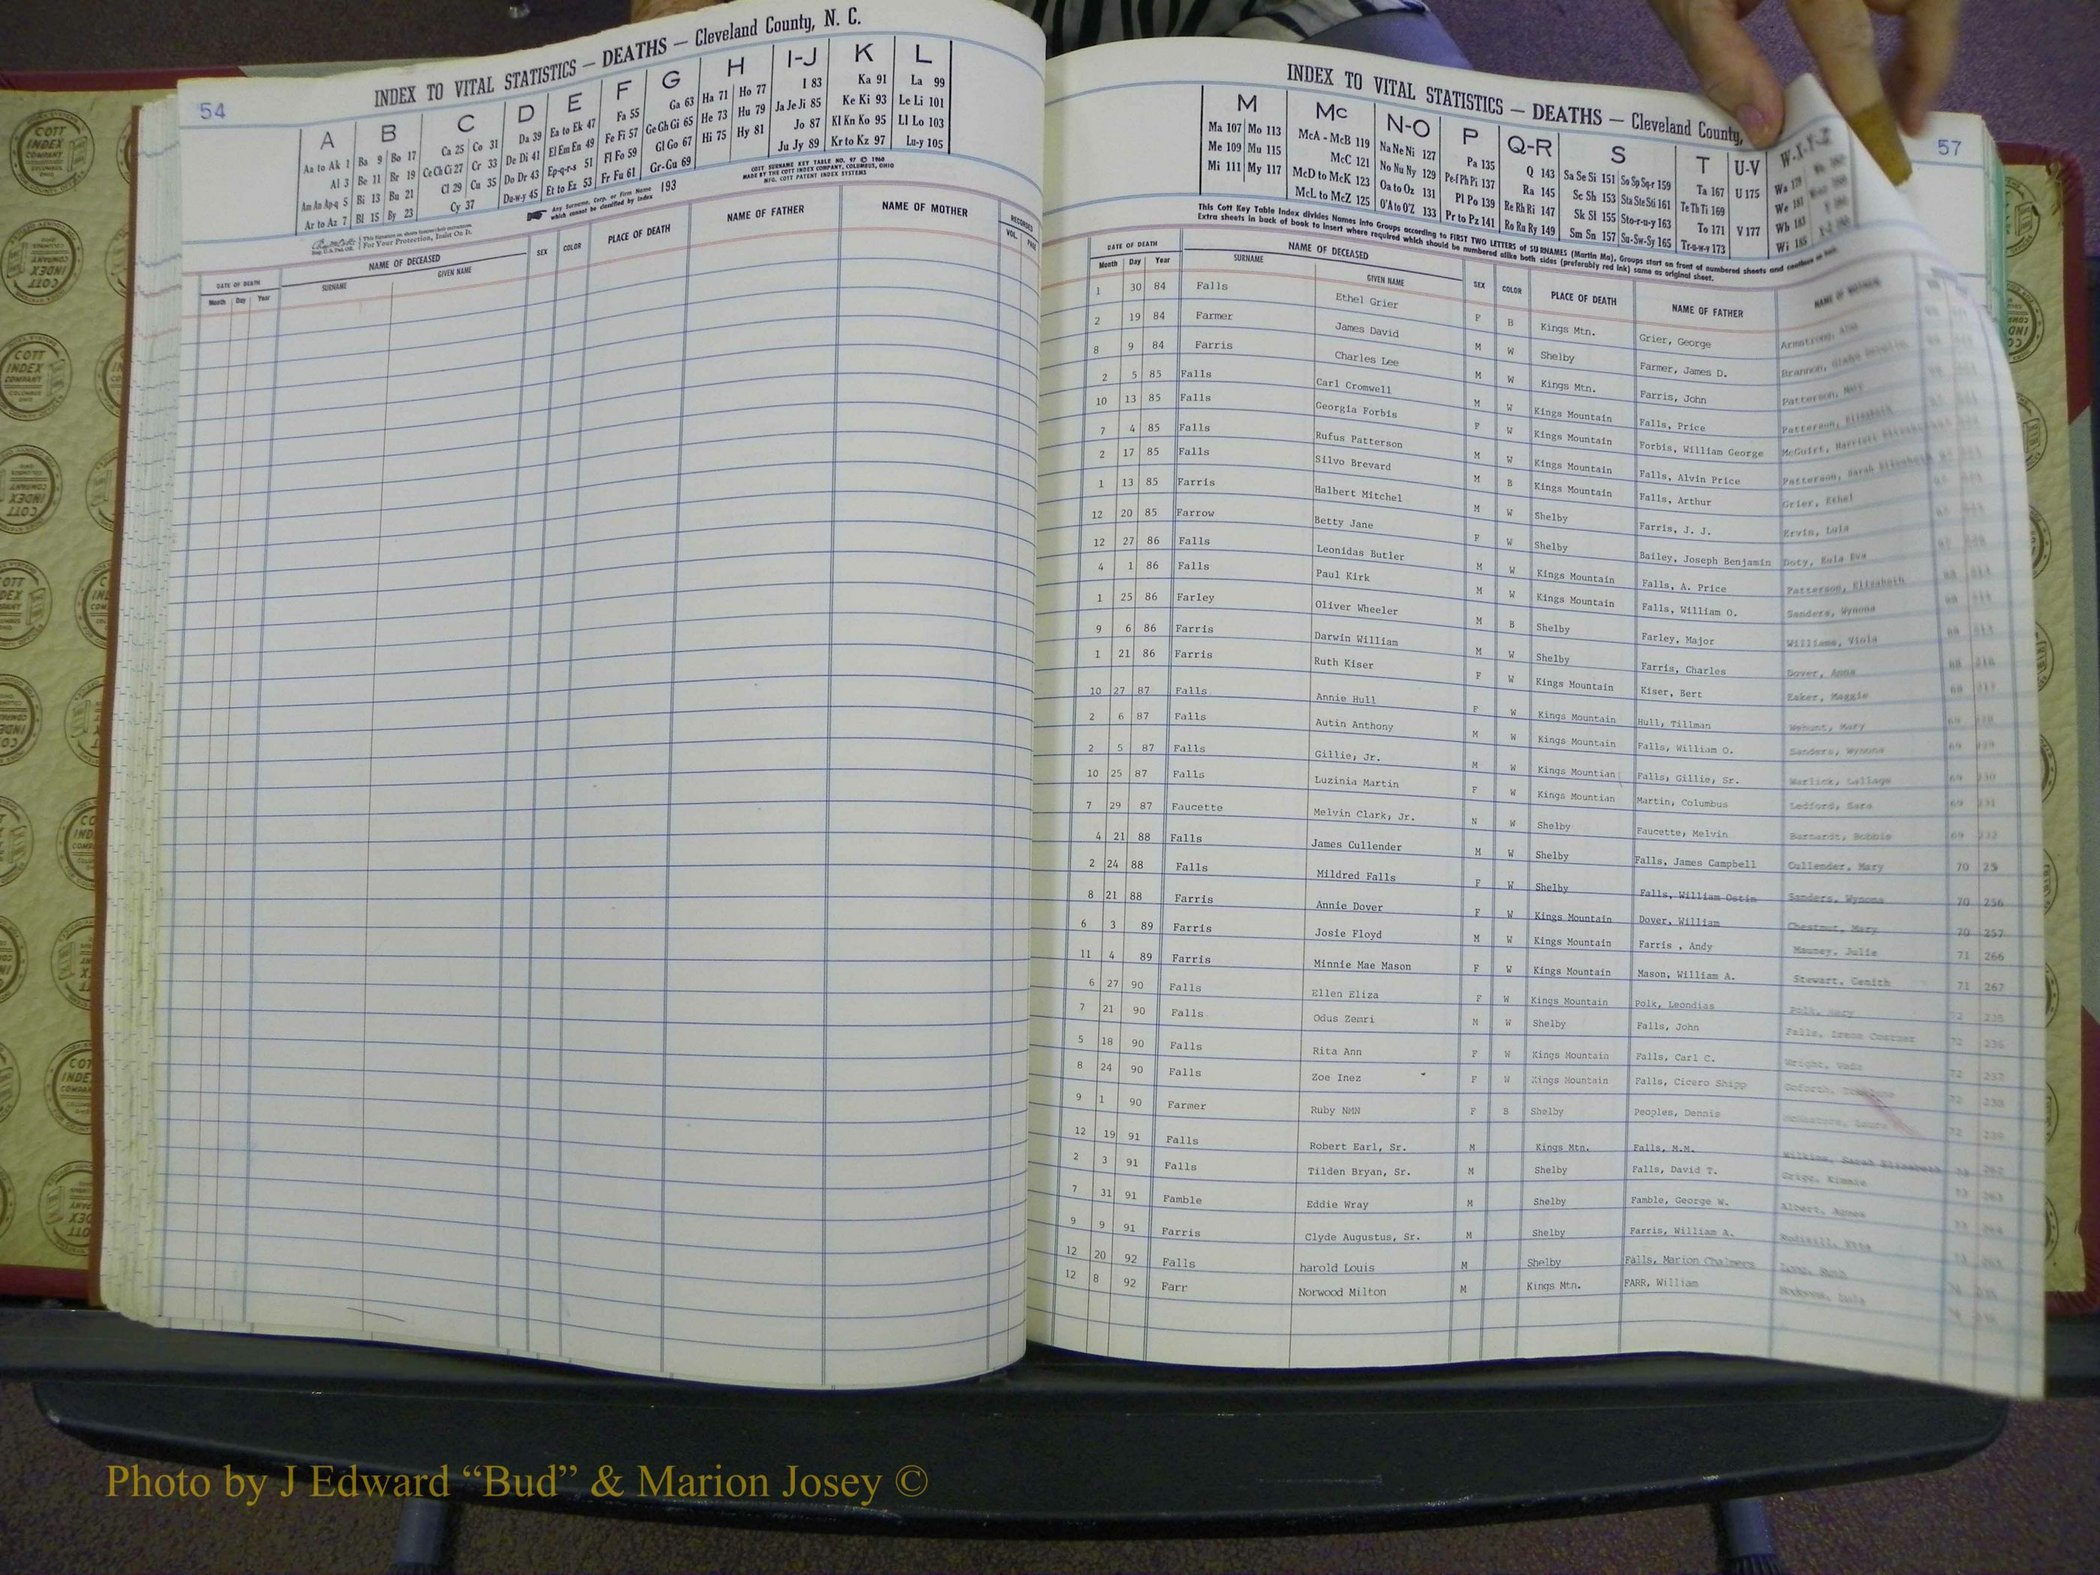 54
INDEX TO VITAL STATISTICS — DEATHS — Cleveland County, N. C.
A B C D E F G H I-J K L
Aa to Ak 1 Ba 9 Bo 17 Ca 25 Co 31 Da 39 Ea to Ek 47 Fa 55 Ga 63 Ha 71 Ho 77 I 83 Ka 91 La 99
Al 3 Be 11 Br 19 Ce Ch Ci 27 Cr 33 De Di 41 El Em En 49 Fe Fi 57 Ge Gh Gi 65 He 73 Hu 79 Ja Je Ji 85 Ke Ki 93 Le Li 101
Am An Ap-q 5 Bi 13 Bu 21 Cl 29 Cu 35 Do Dr 43 Ep-q-r-s 51 Fl Fo 59 Gl Go 67 Hi 75 Hy 81 Jo 87 Kl Kn Ko 95 Ll Lo 103
Ar to Az 7 Bl 15 By 23 Cy 37 Du-w-y 45 Et to Ez 53 Fr Fu 61 Gr-Gu 69 Ju Jy 89 Kr to Kz 97 Lu-y 105
Any Surname, Corp. or Firm Name which cannot be classified by Index 193
COTT SURNAME KEY TABLE NO. 97 © 1960
MADE BY THE COTT INDEX COMPANY, COLUMBUS, OHIO
MFG. COTT PATENT INDEX SYSTEMS
For Your Protection, Insist On It.
DATE OF DEATH NAME OF DECEASED SEX COLOR PLACE OF DEATH NAME OF FATHER NAME OF MOTHER RECORDED
Month Day Year SURNAME GIVEN NAME VOL. PAGE
57
INDEX TO VITAL STATISTICS — DEATHS — Cleveland County,
M Mc N-O P Q-R S T U-V W-X-Y-Z
Ma 107 Mo 113 McA - McB 119 Na Ne Ni 127 Pa 135 Q 143 Sa Se Si 151 So Sp Sq-r 159 Ta 167 U 175
Me 109 Mu 115 McC 121 No Nu Ny 129 Pe-f Ph Pi 137 Ra 145 Se Sh 153 Sta Ste Sti 161 Te Th Ti 169 We 181
Mi 111 My 117 McD to McK 123 Oa to Oz 131 Pl Po 139 Re Rh Ri 147 Sk Sl 155 Sto-r-u-y 163 To 171 V 177 Wh 183
McL to McZ 125 O'A to O'Z 133 Pr to Pz 141 Ro Ru Ry 149 Sm Sn 157 Su-Sw-Sy 165 Tr-u-w-y 173 Wi 185
This Cott Key Table Index divides Names into Groups according to FIRST TWO LETTERS of SURNAMES (Martin Ma), Groups start on front of numbered sheets and continue on back.
Extra sheets in back of book to insert where required which should be numbered alike both sides (preferably red ink) same as original sheet.
DATE OF DEATH NAME OF DECEASED SEX COLOR PLACE OF DEATH NAME OF FATHER NAME OF MOTHER
Month Day Year SURNAME GIVEN NAME
1 30 84 Falls Ethel Grier F B Kings Mtn. Grier, George Armstrong,
2 19 84 Farmer James David M W Shelby Farmer, James D. Brannon,
8 9 84 Farris Charles Lee M W Kings Mtn. Farris, John Patterson, Mary
2 5 85 Falls Carl Cromwell M W Kings Mountain Falls, Price Patterson, Elizabeth
10 13 85 Falls Georgia Forbis F W Kings Mountain Forbis, William George McGuirt, Harriett
7 4 85 Falls Rufus Patterson M W Kings Mountain Falls, Alvin Price Patterson, Sarah Elizabeth
2 17 85 Falls Silvo Brevard M B Kings Mountain Falls, Arthur Grier, Ethel
1 13 85 Farris Halbert Mitchel M W Shelby Farris, J. J. Ervis, Lula
12 20 85 Farrow Betty Jane F W Shelby Bailey, Joseph Benjamin Doty, Eula Eva
12 27 86 Falls Leonidas Butler M W Kings Mountain Falls, A. Price Patterson, Elizabeth
4 1 86 Falls Paul Kirk M W Kings Mountain Falls, William O. Sanders, Wynona
1 25 86 Farley Oliver Wheeler M B Shelby Farley, Major Williams, Viola
9 6 86 Farris Darwin William M W Shelby Farris, Charles Dover, Anna
1 21 86 Farris Ruth Kiser F W Kings Mountain Kiser, Bert Eaker, Maggie
10 27 87 Falls Annie Hull F W Kings Mountain Hull, Tillman Wehunt, Mary
2 6 87 Falls Autin Anthony M W Kings Mountain Falls, William O. Sanders, Wynona
2 5 87 Falls Gillie, Jr. M W Kings Mountian Falls, Gillie, Sr. Warlick,
10 25 87 Falls Luzinia Martin F W Kings Mountian Martin, Columbus Ledford, Sara
7 29 87 Faucette Melvin Clark, Jr. N W Shelby Faucette, Melvin Barnardt, Bobbie
4 21 88 Falls James Cullender M W Shelby Falls, James Campbell Cullender, Mary 70 25
2 24 88 Falls Mildred Falls F W Shelby Falls, William Ostin Sanders, Wynona 70 256
8 21 88 Farris Annie Dover F W Kings Mountain Dover, William Chestnut, Mary 70 257
6 3 89 Farris Josie Floyd M W Kings Mountain Farris , Andy Mauney, Julie 71 266
11 4 89 Farris Minnie Mae Mason F W Kings Mountain Mason, William A. Stewart, Cenith 71 267
6 27 90 Falls Ellen Eliza F W Kings Mountain Polk, Leondias Polk, Mary 72 235
7 21 90 Falls Odus Zemri M W Shelby Falls, John Falls, Irene Costner 72 236
5 18 90 Falls Rita Ann F W Kings Mountain Falls, Carl C. Wright, 72 237
8 24 90 Falls Zoe Inez F W Kings Mountain Falls, Cicero Shipp Goforth, 72 238
9 1 90 Farmer Ruby NMN F B Shelby Peoples, Dennis 72 239
12 19 91 Falls Robert Earl, Sr. M Kings Mtn. Falls, M.M. Wilkins, Sarah Elizabeth
2 3 91 Falls Tilden Bryan, Sr. M Shelby Falls, David T. Grigg,
7 31 91 Famble Eddie Wray M Shelby Famble, George W. Albert, Agnes
9 9 91 Farris Clyde Augustus, Sr. M Shelby Farris, William A. Etta
12 20 92 Falls harold Louis M Shelby Falls, Marion Chalmers
12 8 92 Farr Norwood Milton M Kings Mtn. FARR, William
Photo by J Edward “Bud” & Marion Josey ©